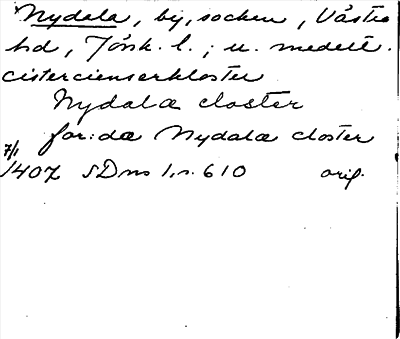 Nydala, by, socken, Västra
hd, Jönk. l.; u. medelt.
cistercienserkloster
Nydala closter
for:da Nydala closter
7/1
1407 SDns 1, s. 610 orig.